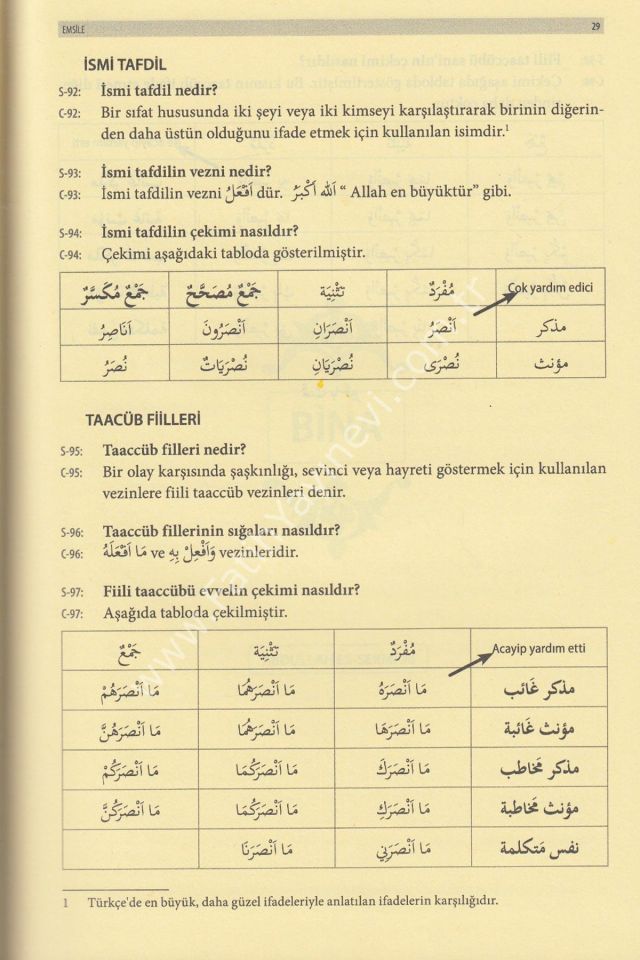 EMSİLE 29
İSMİ TAFDİL
S-92: İsmi tafdil nedir?
C-92: Bir sıfat hususunda iki şeyi veya iki kimseyi karşılaştırarak birinin diğerin-
den daha üstün olduğunu ifade etmek için kullanılan isimdir.¹
S-93: İsmi tafdilin vezni nedir?
C-93: İsmi tafdilin vezni اَفْعَلُ dür. اَللّٰهُ اَكْبَرُ “ Allah en büyüktür” gibi.
S-94: İsmi tafdilin çekimi nasıldır?
C-94: Çekimi aşağıdaki tabloda gösterilmiştir.
Çok yardım edici مُفْرَدٌ تَثْنِيَة جَمْعٌ مُصَحَّحٌ جَمْعٌ مُكَسَّرٌ
مذكر اَنْصَرُ اَنْصَرَانِ اَنْصَرُونَ اَنَاصِرُ
مؤنث نُصْرَى نُصْرَيَانِ نُصْرَيَاتٌ نُصَرُ
TAACÜB FİİLLERİ
S-95: Taaccüb filleri nedir?
C-95: Bir olay karşısında şaşkınlığı, sevinci veya hayreti göstermek için kullanılan
vezinlere fiili taaccüb vezinleri denir.
S-96: Taaccüb fillerinin sığaları nasıldır?
C-96: مَا اَفْعَلَهُ ve وَاَفْعِلْ بِهِ vezinleridir.
S-97: Fiili taaccübü evvelin çekimi nasıldır?
C-97: Aşağıda tabloda çekilmiştir.
Acayip yardım etti مُفْرَدٌ تَثْنِيَة جَمْعٌ
مذكر غَائب مَا اَنْصَرَهُ مَا اَنْصَرَهُمَا مَا اَنْصَرَهُمْ
مؤنث غَائبة مَا اَنْصَرَهَا مَا اَنْصَرَهُمَا مَا اَنْصَرَهُنَّ
مذكر مخَاطب مَا اَنْصَرَكَ مَا اَنْصَرَكُمَا مَا اَنْصَرَكُمْ
مؤنث مخَاطبة مَا اَنْصَرَكِ مَا اَنْصَرَكُمَا مَا اَنْصَرَكُنَّ
نفس مَتكلمة مَا اَنْصَرَنِي مَا اَنْصَرَنَا
1 Türkçe'de en büyük, daha güzel ifadeleriyle anlatılan ifadelerin karşılığıdır.